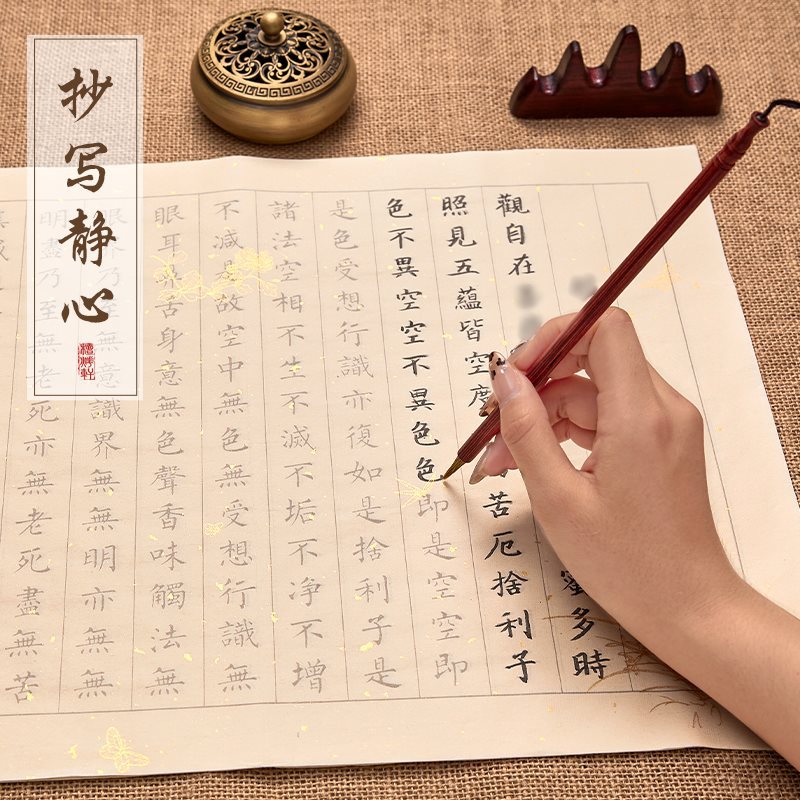 抄写静心
觀自在蜜多時
照見五蘊皆空度苦厄捨利子
色不異空空不異色色即是空空即
是色受想行識亦復如是捨利子是
諸法空相不生不滅不垢不净不增
不減是故空中無色無受想行識無
眼耳鼻舌身意無色聲香味觸法無
眼界乃至無意識界無無明亦無無
明盡乃至無老死亦無老死盡無苦